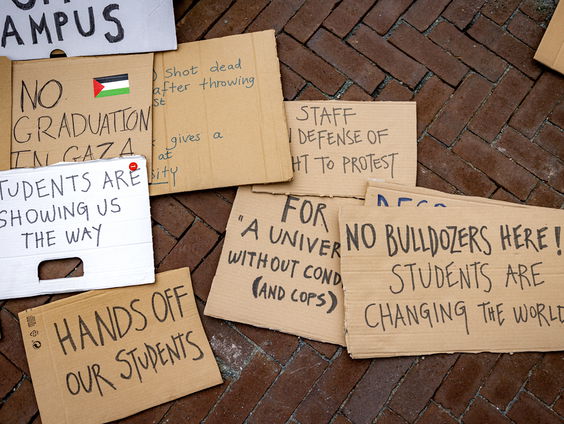 AMPUS
NO
GRADUATION
IN GAZA
Shot dead
after throwing
st
gives a
at
sity
STAFF
DEFENSE OF
HT TO PROTEST
STUDENTS ARE
SHOWING US
THE WAY
FOR
"A UNIVER
WITHOUT COND
(AND COPS)
NO BULLDOZERS HERE!
STUDENTS ARE
CHANGING THE WORLD
HANDS OFF
OUR STUDENTS